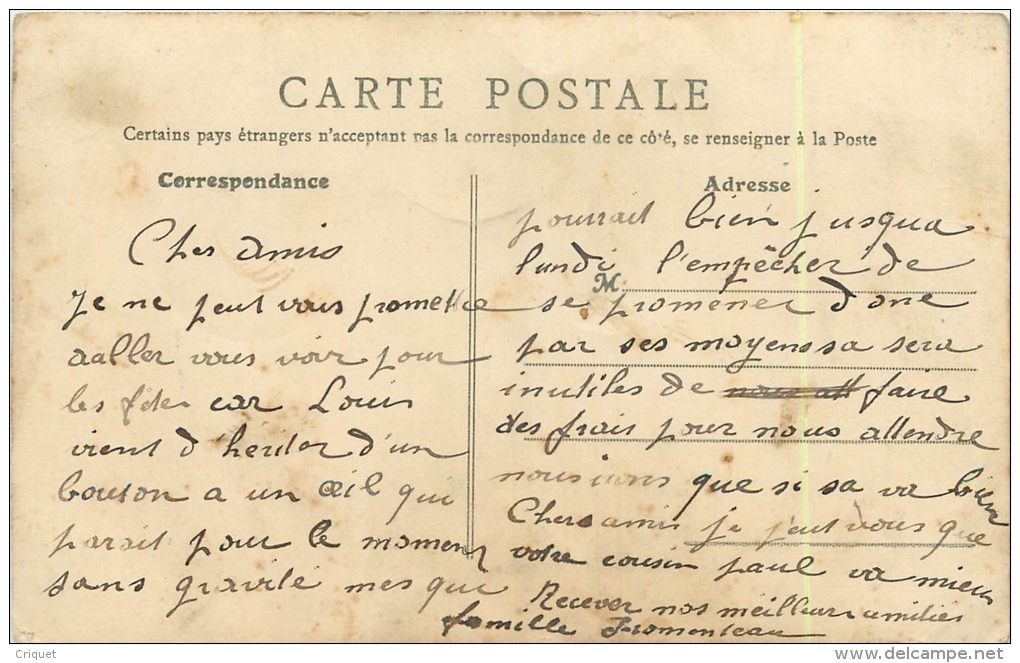 CARTE POSTALE
Certains pays étrangers n'acceptant pas la correspondance de ce côté, se renseigner à la Poste
Correspondance
Cher amis
Je ne peut vous promettre
aaller vous voir pour
les fêtes car Louis
vient d'hériter d'un
bouton a un œil qui
parait pour le moment
sans gravité mes qui
Adresse
pourrait bien jusqua
lundi l'empêcher de
M.
se promener donc
par ses moyens sa sera
inutiles de faire
des frais pour nous attendre
nous irons que si sa va bien
Chers amis je peut vous que
votre cousin paul va mieux
Recever nos meilleur amitiés
famille Fromenteau
Criquet
delcampe.net